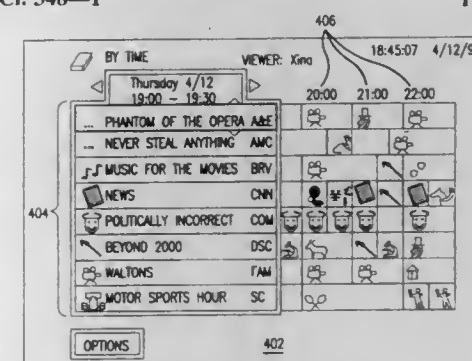 406
BY TIME VIEWER: Xina 18:45:07 4/12/9
Thursday 4/12
19:00 – 19:30 20:00 21:00 22:00
... PHANTOM OF THE OPERA A&E
... NEVER STEAL ANYTHING AMC
MUSIC FOR THE MOVIES BRV
NEWS CNN
404 POLITICALLY INCORRECT COM
BEYOND 2000 DSC
WALTONS FAM
MOTOR SPORTS HOUR SC
OPTIONS 402